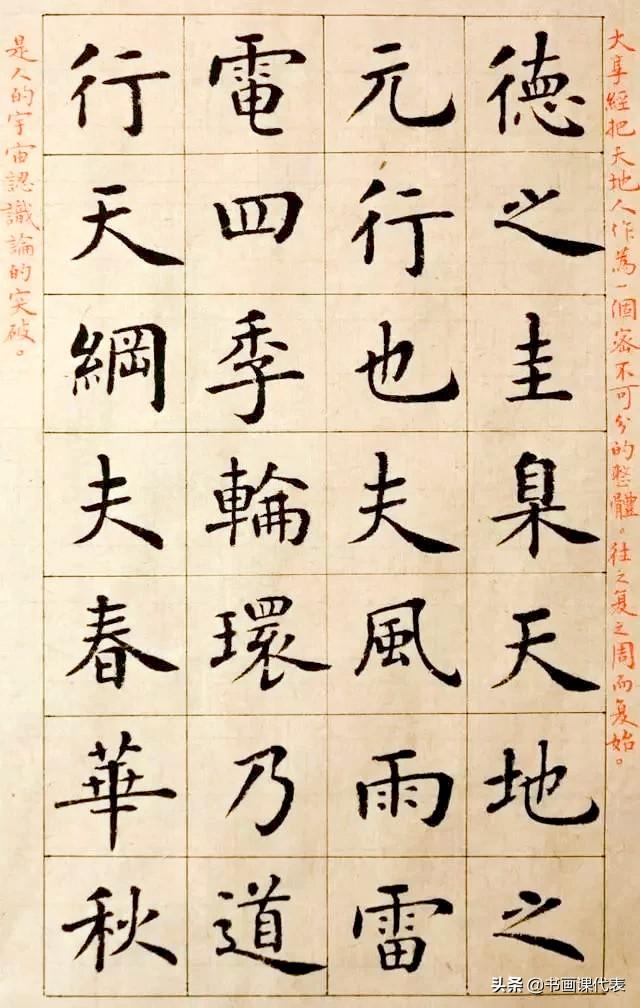 大阜經把天地人作為一個密不可分的整體。往之复之周而复始。
德之圭臬天地之
元行也夫風雨雷
電四季輪環乃道
行天綱夫春華秋
是人的宇宙認識論的突破。
头条 @书画课代表